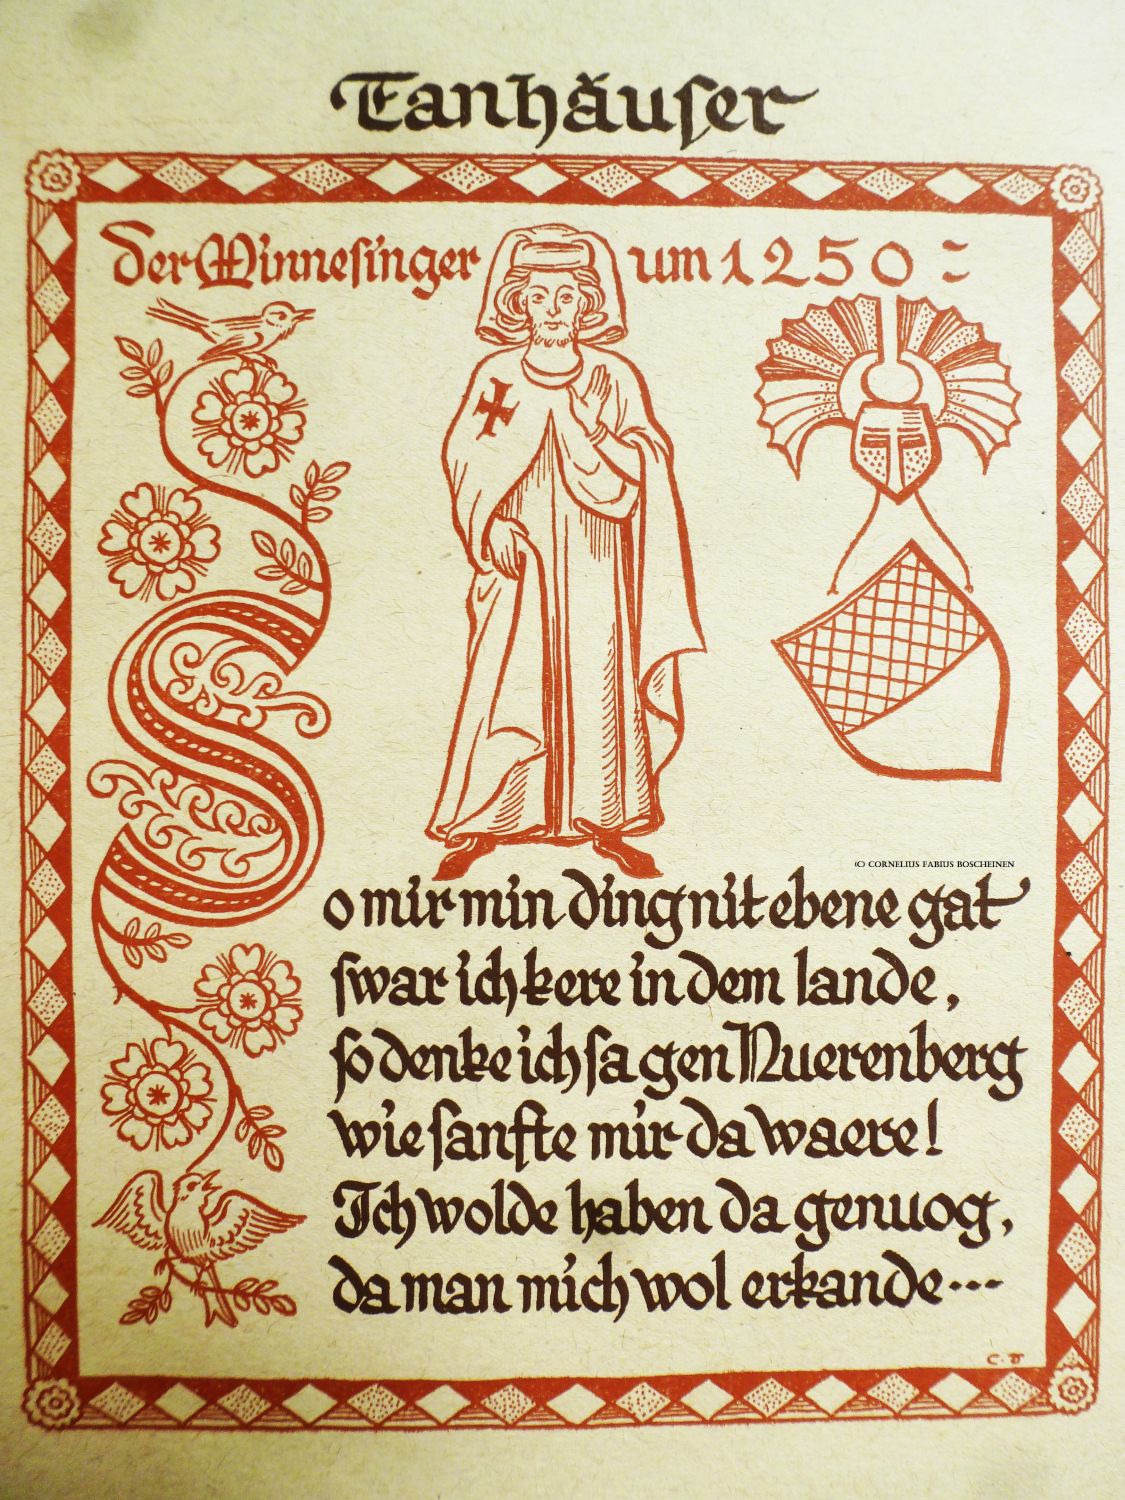 Tanhäuser
der Minnesinger um 1250
(C) CORNELIUS FABIUS BOSCHEINEN
So mir min ding nit ebene gat
swar ich kere in dem lande,
so denke ich sa gen Nuerenberg
wie sanfte mir da waere!
Ich wolde haben da genuog,
da man mich wol erkande...